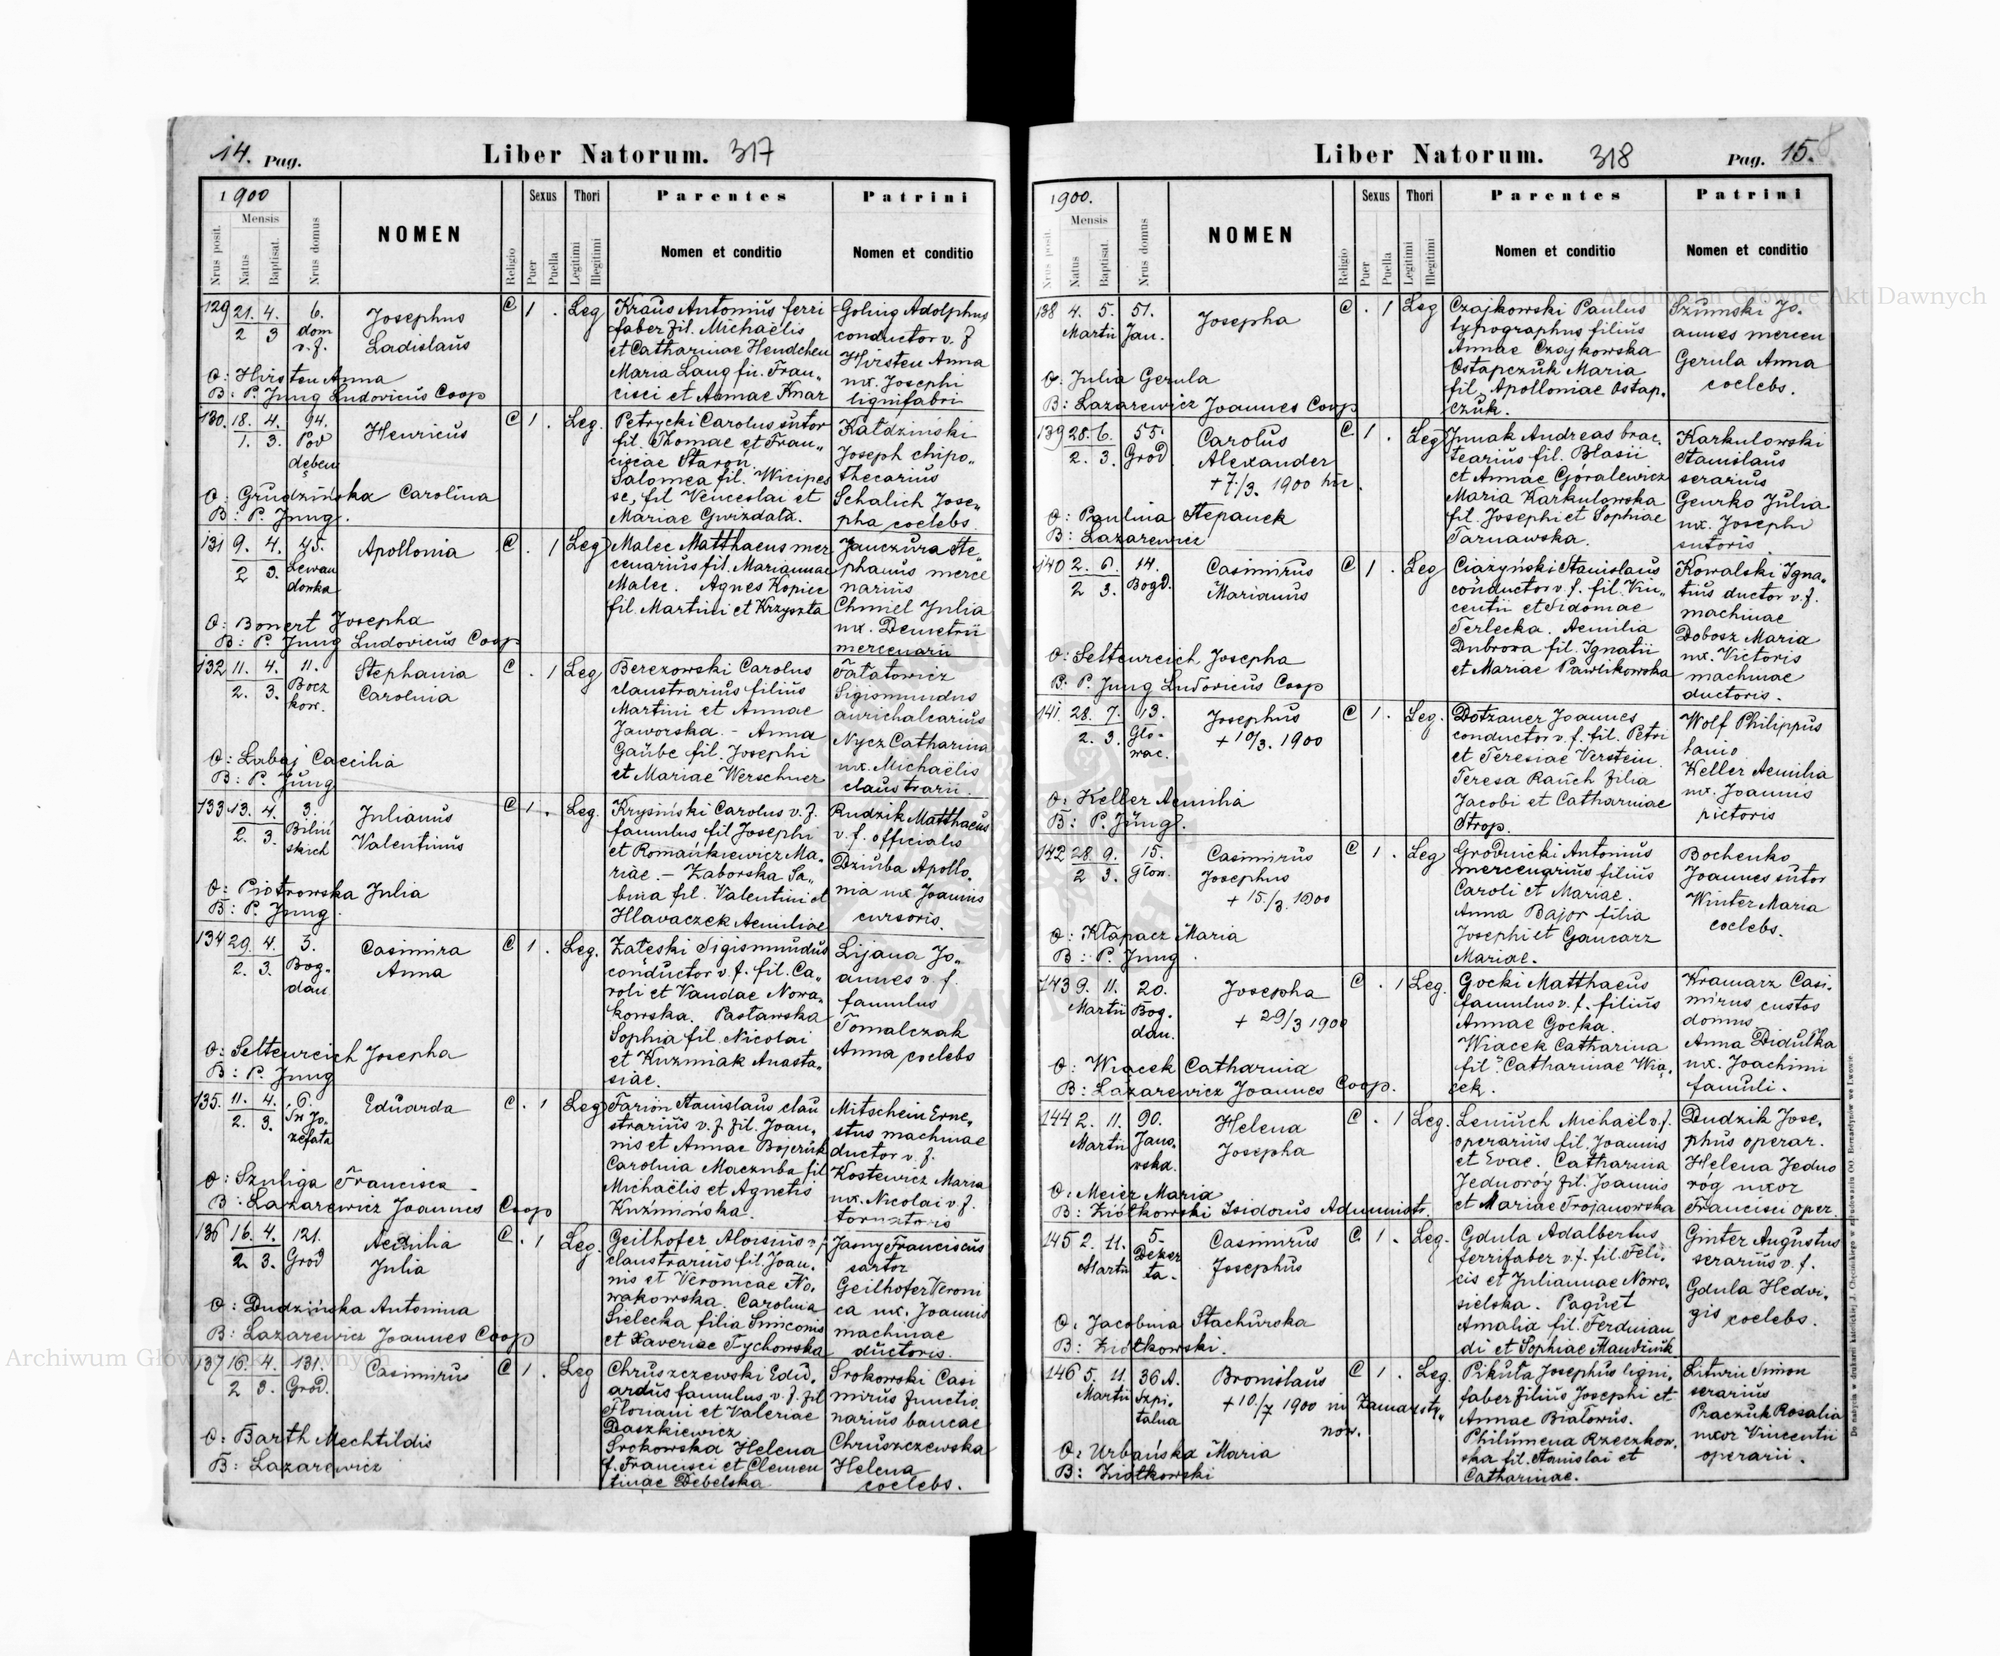 14. Pag. Liber Natorum. 317
1900
Mensis
Nrus posit.
Natus
Baptisat.
Nrus domus
NOMEN
Religio
Sexus
Puer
Puella
Thori
Legitimi
Illegitimi
Parentes
Nomen et conditio
Patrini
Nomen et conditio
129 21. 4. 6. Josephus C 1 . Leg Kraus Antonius ferri Goling Adolphus
2 3 dom Ladislaus faber fil. Michaëlis conductor v. f
v. f. et Catharinae Hendchen Hirsten Anna
O: Hirsten Anna Maria Lang fil. Fran- ux. Josephi
B: P. Jung Ludovicus Coop cisci et Annae Knar lignifabri
130. 18. 4. 94. Henricus C 1 . Leg. Petrycki Carolus sutor Katdziński
1. 3. Pod fil. Thomae et Fran- Joseph chipo-
dębem ciscae Staroń. thecarius
O: Grudzińska Carolina Salomea fil. Wicipes Schalich Jose-
B: P. Jung. se, fil Venceslai et pha coelebs.
Mariae Gwizdała.
131 9. 4. 45. Apollonia C . 1 Leg Malec Matthaeus mer Janczura Ste-
2 3. Lewan cenarius fil. Mariannae phanus merce
dowka Malec. Agnes Kopiec narius
O: Bonert Josepha fil. Martini et Krzyszta Chmiel Julia
B: P. Jung Ludovicus Coop ux. Demetrii
mercenarii
132 11. 4. 11. Stephania C . 1 Leg Berezowski Carolus Fatatowicz
2. 3. Bocz Carolina claustrarius filius Sigismundus
kow. Martini et Annae aurichalcarius
Jaworska. - Anna Nycz Catharina
O: Łabaj Caecilia Gaube fil. Josephi ux. Michaëlis
B: P. Jung et Mariae Werschner claustrarii.
133 13. 4. 3. Julianus C 1 . Leg. Krysiński Carolus v. f. Rudzik Matthaeus
2. 3. Biliń Valentinus famulus fil Josephi v. f. officialis
skich et Romańkiewicz Ma- Dziuba Apollo-
O: Piotrowska Julia riae. - Zaborska Sa- nia ux Joannis
B: P. Jung. bina fil. Valentini et cursoris.
Hlavaczek Aemiliae
134 29. 4. 3. Casimira C 1 . Leg. Zaleski Sigismundus Lijana Jo-
2. 3. Bog- Anna conductor v. f. fil. Ca- annes v. f.
dan roli et Vandae Nowa- famulus
kowska. Pasławska Tomalczak
O: Seltenreich Josepha Sophia fil. Nicolai Anna coelebs
B: P. Jung et Kuzmiak Anasta-
siae.
135. 11. 4. 6. Eduarda C . 1 Leg Farion Stanislaus clau Mitschein Erne-
2. 3. Sw Jo- strarius v. f. fil. Joan- stus machinae
zefata nis et Annae Bojeruk ductor v. f.
O: Szuliga Francisca Carolina Maczuba fil Kostewicz Maria
B: Lazarewicz Joannes Coop Michaëlis et Agnetis ux. Nicolai v. f.
Kuźmińska. tornatoris
136 16. 4. 121. Aemilia C . 1 Leg. Geilhofer Aloisius v f Jasny Franciscus
2. 3. Grod Julia claustrarius fil. Joan- sartor
nis et Veronicae No- Geilhofer Veroni
O: Dudzińska Antonina wakowska. Carolina ca ux. Joannis
B: Lazarewicz Joannes Coop Sielecka filia Simeonis machinae
et Xaveriae Tychowska ductoris.
137 16. 4. 131. Casimirus C 1 . Leg Chruszczewski Edu- Srokowski Casi
2 3. Grod. ardus famulus v. f. fil mirus functio
Floriani et Valeriae narius bancae
O: Barth Mechtildis Daszkiewicz Chruszczewska
B: Lazarewicz Srokowska Helena Helena
f. Francisci et Clemen coelebs.
tinae Debelska
Liber Natorum. 318 Pag. 15.
1900.
Mensis
Nrus posit.
Natus
Baptisat.
Nrus domus
NOMEN
Religio
Sexus
Puer
Puella
Thori
Legitimi
Illegitimi
Parentes
Nomen et conditio
Patrini
Nomen et conditio
138 4. 5. 51. Josepha C . 1 Leg Czajkowski Paulus Szumski Jo-
Martii Jan. typographus filius annes mercen
Annae Czajkowska Gerula Anna
O: Julia Gerula Ostapczuk Maria coelebs.
B: Lazarewicz Joannes Coop fil. Apolloniae Ostap-
czuk.
139 28. 6. 55. Carolus C. 1 . Leg Jnnak Andreas brac- Karkulowski
2. 3. Grod. Alexander tearius fil. Blasii Stanislaus
+ 7./3. 1900 hic. et Annae Góralewicz serarius
Maria Karkulowska Geurko Julia
O: Paulina Stepanek fil. Josephi et Sophiae ux. Josephi
B: Lazarewicz Tarnawska. sutoris.
140 2. 6. 14. Casimirus C 1 . Leg Ciązyński Stanislaus Kowalski Igna-
2 3. Bogd. Marianus conductor v. f. fil. Vin- tius ductor v. f.
centii et Sidoniae machinae
Terlecka. Aemilia Dobosz Maria
O: Seltenreich Josepha Dubrova fil. Ignatii ux. Victoris
B: P. Jung Ludovicus Coop et Mariae Pawlikowska machinae
ductoris.
141. 28. 7. 13. Josephus C 1 . Leg. Dotzauer Joannes Wolf Philippus
2. 3. Gło- + 10/3. 1900 conductor v. f. fil. Petri lanio
wac. et Teresiae Verstein. Keller Aemilia
O: Keller Aemilia Teresa Rauch filia ux. Joannis
B: P. Jung. Jacobi et Catharinae pictoris
Strop.
142 28. 9. 15. Casimirus C 1 . Leg Grodnicki Antonius Bochenko
2 3. Głow. Josephus mercenarius filius Joannes sutor
+ 15./3. 1900 Caroli et Mariae. Winter Maria
O: Kłapacz Maria Anna Bajor filia coelebs.
B: P. Jung. Josephi et Gancarz
Mariae.
143 9. 11. 20. Josepha C . 1 Leg. Gocki Matthaeus Kramarz Casi-
Martii Bog- + 29/3 1900 famulus v. f. filius mirus custos
dan. Annae Gocka. domus
Wiącek Catharina Anna Didulka
O: Wiącek Catharina fil. Catharinae Wią- ux. Joachimi
B: Lazarewicz Joannes Coop. cek. famuli.
144 2. 11. 90. Helena C . 1 Leg. Leniuch Michaël v. f. Dudzik Jose-
Martii Jano- Josepha operarius fil. Joannis phus operar.
wska. et Evae. Catharina Helena Jedno
O: Meier Maria Jednoróg fil. Joannis róg uxor
B: Ziółkowski Isidorus Administr. et Mariae Trojanowska Francisci oper.
145 2. 11. 5. Casimirus C. 1 . Leg. Gdula Adalbertus Ginter Augustus
Martii Dezer Josephus ferrifaber v. f. fil. Feli- serarius v. f.
ta. cis et Juliannae Nowo- Gdula Hedvi-
sielska. Paquet gis coelebs.
O: Jacobina Stachurska Amalia fil. Ferdinan
B: Ziółkowski. di et Sophiae Handziuk
146 5. 11. 36 A. Bronislaus C 1 . Leg. Pikuła Josephus ligni- Litwin Simon
Martii Szpi- + 10./7 1900 in Zamarsty- faber filius Josephi et serarius
talna now. Annae Białowus. Praczuk Rosalia
O: Urbańska Maria Philumena Rzeczkow- uxor Vincentii
B: Ziółkowski ska fil. Stanislai et operarii.
Catharinae.
Archiwum Główne Akt Dawnych
Do nabycia w drukarni katolickiej J. Chęcińskiego w zabudowaniu OO. Bernardynów we Lwowie.